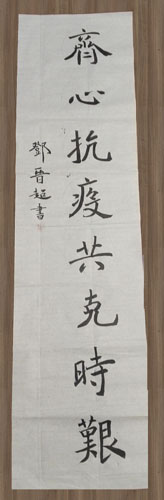 齊心抗疫共克時艱
鄧晋超書